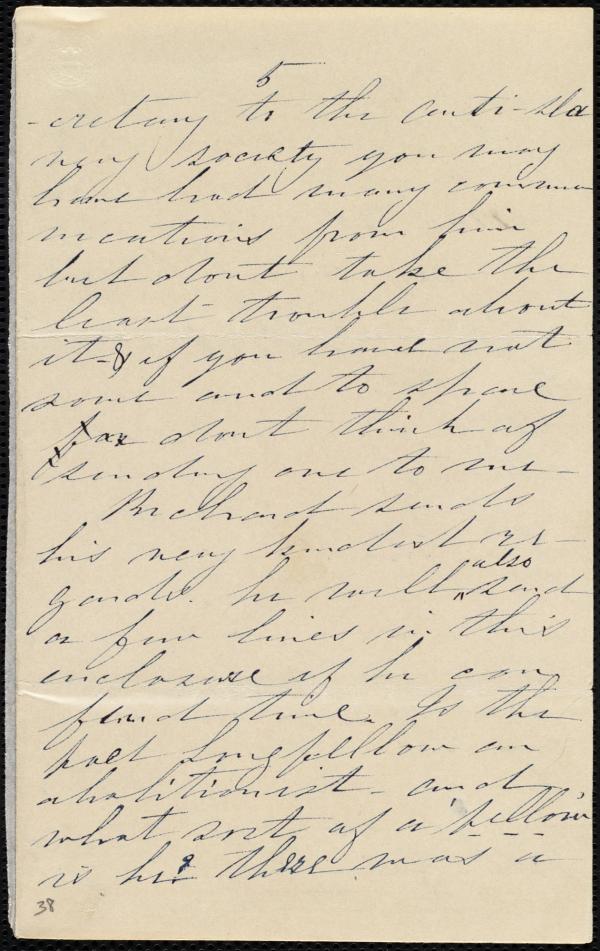 5
-cretary to the anti-sla
very society you may
have had many commu
nications from him
but dont take the
least trouble about
it - & if you have not
some and to spare
dont think of
sending one to me -
Richard sends
his very kindest re-
gards. he will also send
a few lines in this
enclosure if he can
find time. Is the
poet Longfellow an
abolitionist - and
what sort of a 'fellow'
is he? there was a
38